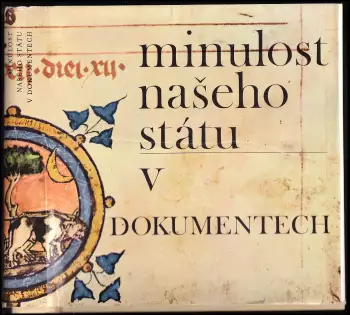 MINULOST
NAŠEHO STÁTU
V DOKUMENTECH
diei.xij.
minulost
našeho
státu
v
DOKUMENTECH